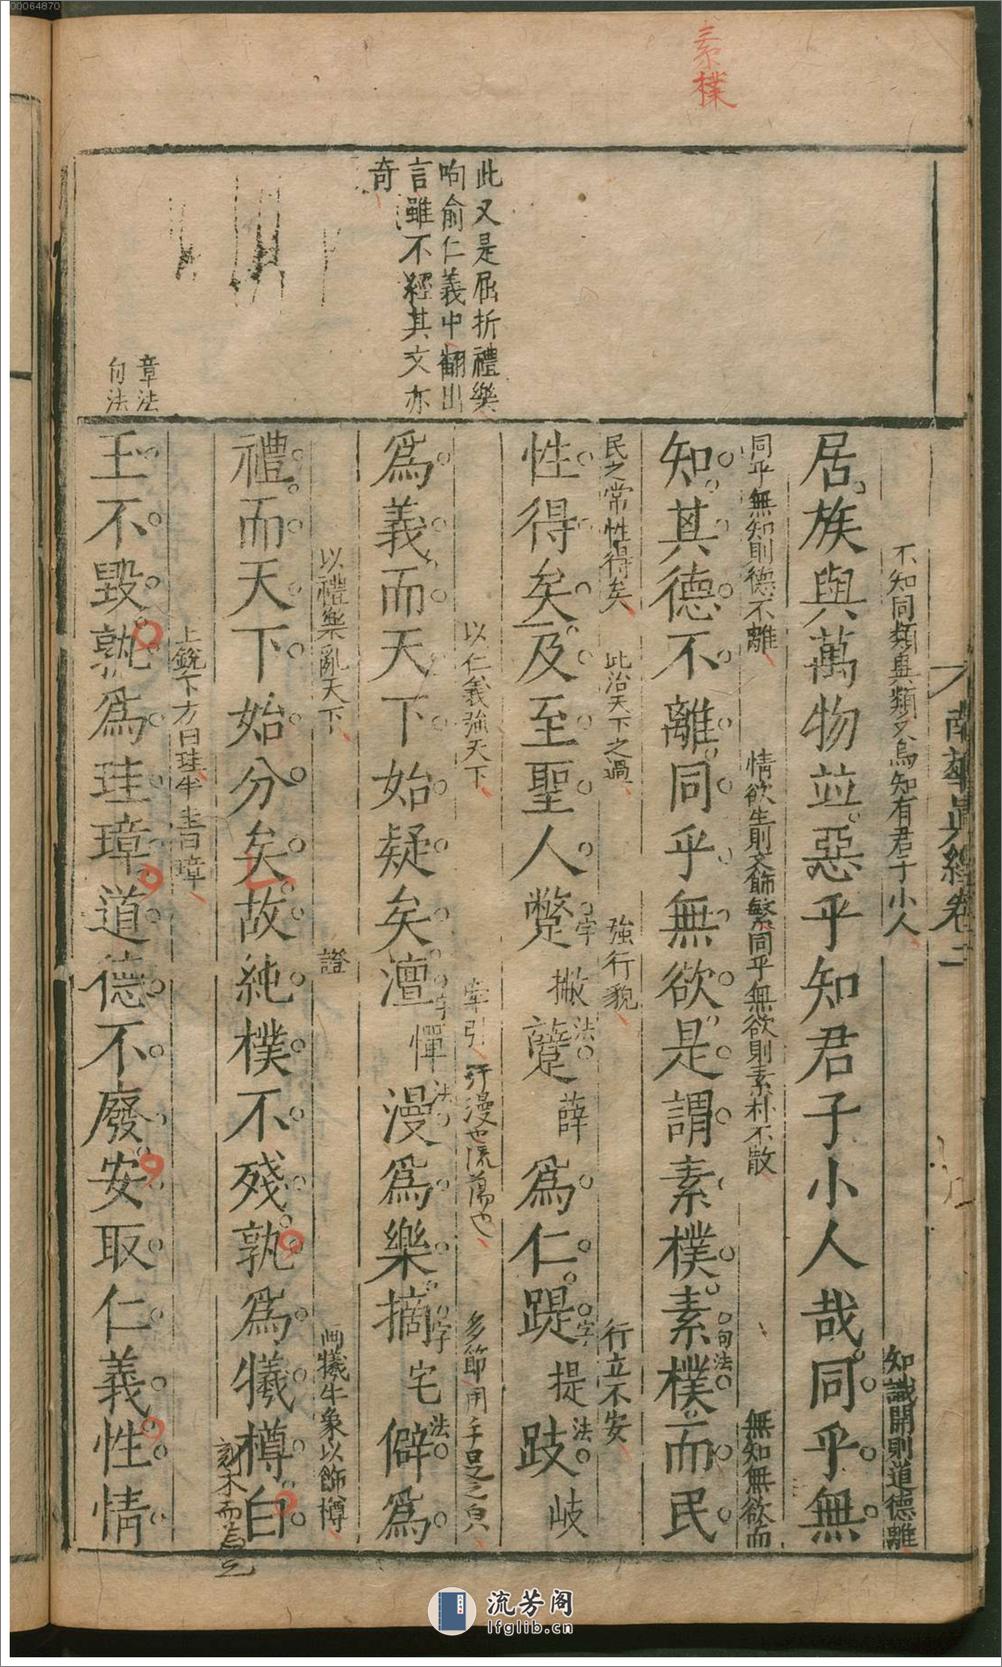 00064870
素樸
此又是屈折禮樂
呴俞仁義中翻出
言雖不經其文亦
奇
章法
句法
南華真經卷二
不知同類異類又烏知有君子小人
知識開則道德離
居族與萬物並惡乎知君子小人哉同乎無
同乎無知則德不離
情欲生則文飾繁同乎無欲則素朴不散
無知無欲而
知其德不離同乎無欲是謂素樸素樸而民
句法
民之常性得矣
此治天下之過
強行貌
行立不安
性得矣及至聖人蹩撇躠薛為仁踶提跂岐
字法
字法
以仁義強天下
牽引
汗漫也流蕩也
多節用手足之皃
為義而天下始疑矣澶憚漫為樂摘宅僻為
字法
字法
以禮樂亂天下
證
画犧牛象以飾樽
禮而天下始分矣故純樸不殘孰為犧樽白
刻木而為之
上銳下方曰珪半圭曰璋
玉不毀孰為珪璋道德不廢安取仁義性情
流芳阁
lfglib.cn